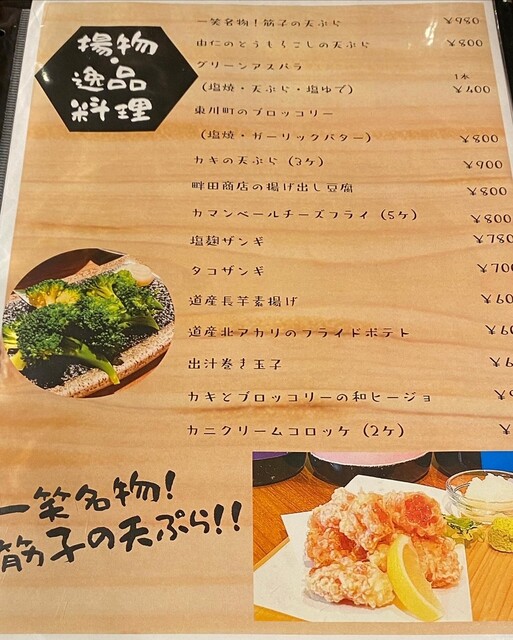 揚物
・
逸品
料理
一笑名物!筋子の天ぷら ¥980
由仁のとうもろこしの天ぷら ¥800
グリーンアスパラ
(塩焼・天ぷら・塩ゆで) 1本 ¥400
東川町のブロッコリー
(塩焼・ガーリックバター) ¥800
カキの天ぷら (3ケ) ¥900
畔田商店の揚げ出し豆腐 ¥800
カマンベールチーズフライ (5ケ) ¥800
塩麹ザンギ ¥780
タコザンギ ¥700
道産長芋素揚げ ¥60
道産北アカリのフライドポテト ¥6
出汁巻き玉子 ¥6
カキとブロッコリーの和ヒージョ ¥
カニクリームコロッケ (2ケ) ¥
一笑名物!
筋子の天ぷら!!